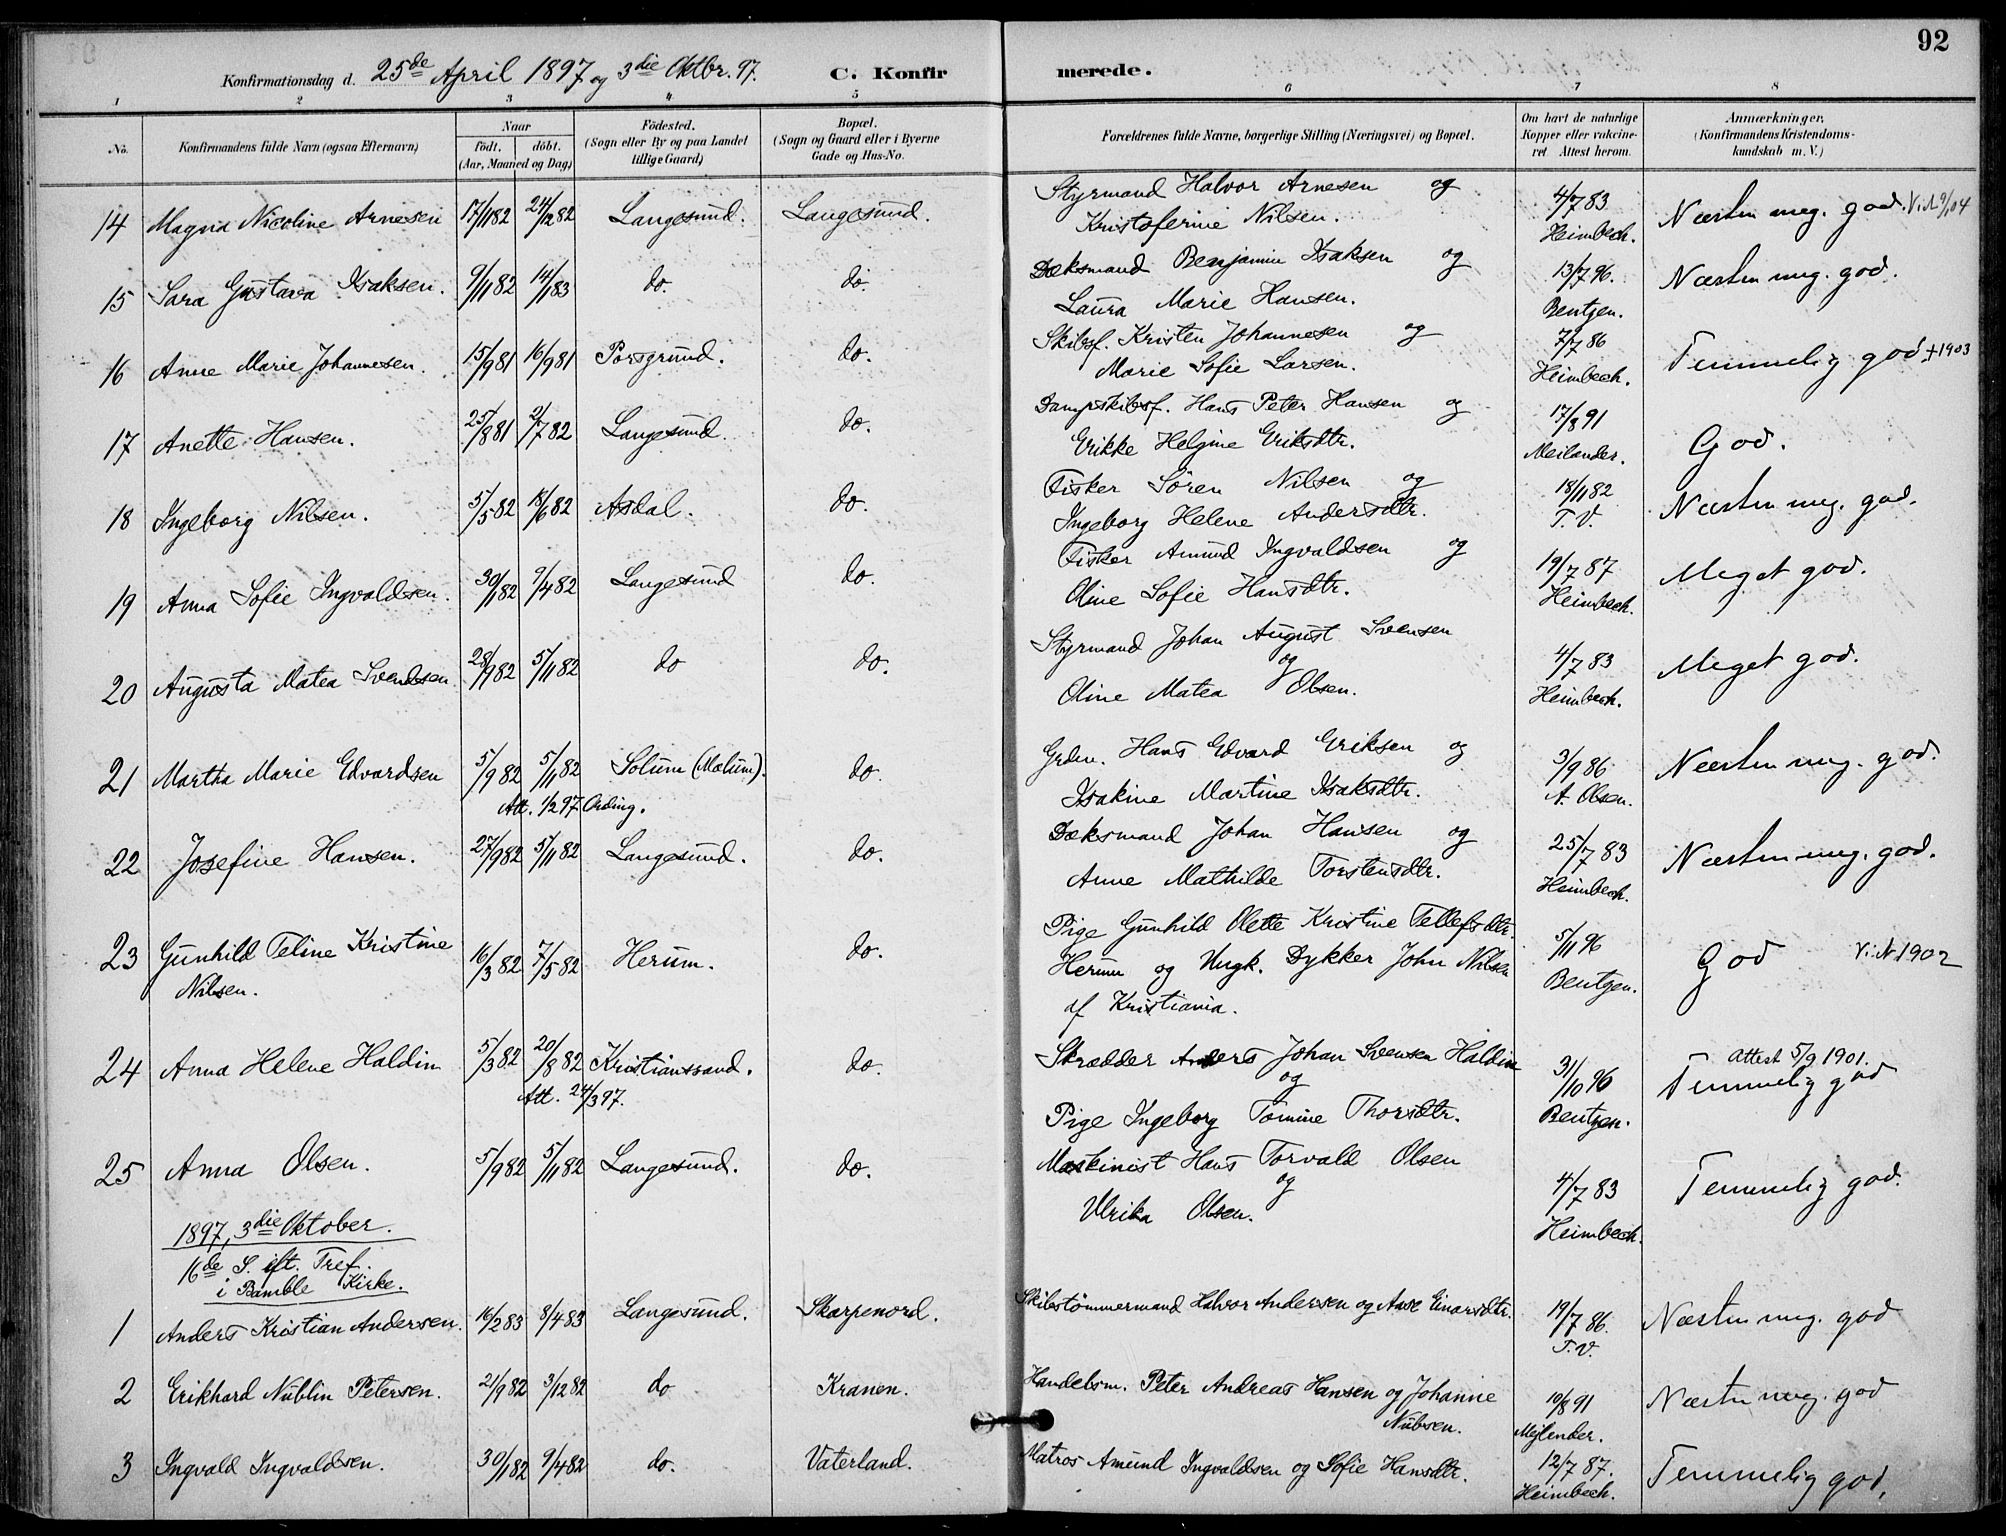 92
Konfirmationsdag d. 25de April 1897 og 3die Oktbr. 97. C. Konfirmerede.
1 2 3 4 5 6 7 8
No. Konfirmandens fulde Navn (ogsaa Efternavn) Naar født. døbt. (Aar, Maaned og Dag) Födested. (Sogn eller By og paa Landet tillige Gaard) Bopæl. (Sogn og Gaard eller i Byerne Gade og Hus-No. Forældrenes fulde Navne, borgerlige Stilling (Næringsvei) og Bopæl. Om havt de naturlige Kopper eller vakcineret Attest herom. Anmærkninger. (Konfirmandens Kristendomskundskab m. V.)
14 Magna Nicoline Arnesen 17/11 82 24/12 82 Langesund. Langesund. Styrmand Halvor Arnesen og Kristoferine Nilsen. 4/7 83 Heimbech. Næsten meg. god.
15 Sara Gustava Isaksen. 9/11 82 14/1 83 do. do. Dæksmand Benjamin Isaksen og Laura Marie Hansen. 13/7 96. Bentzen. Næsten meg. god.
16 Anne Marie Johannesen. 15/9 81 16/9 81 Porsgrund. do. Skibsf. Kristen Johannesen og Marie Sofie Larsen. 7/7 86 Heimbech. Temmelig god +1903
17 Anette Hansen. 25/8 81 2/7 82 Langesund. do. Dampskibsf. Hans Peter Hansen og Erikke Helgine Eriksdtr. 17/8 91 Meilander. God.
18 Ingeborg Nilsen. 5/5 82 18/6 82 Asdal. do. Fisker Sören Nilsen og Ingeborg Helene Andersdtr. 18/11 82 T.V. Næsten meg. god.
19 Anna Sofie Ingvaldsen. 30/1 82 9/4 82 Langesund do. Fisker Amund Ingvaldsen og Oline Sofie Hansdtr. 19/7 87 Heimbech. Meget god.
20 Augusta Matea Svendsen 28/9 82 5/11 82 do do. Styrmand Johan August Svensen og Oline Matea Olsen. 4/7 83 Heimbech. Meget god.
21 Martha Marie Edvardsen 5/9 82 5/11 82 Solum (Mælum). do. Grdm. Hans Edvard Eriksen og Isakine Martine Isaksdtr. 3/9 86 A. Olsen. Næsten meg. god.
Att. 1/2 97 Ording.
22 Josefine Hansen. 27/9 82 5/11 82 Langesund. do. Dæksmand Johan Hansen og Anne Mathilde Torstensdtr. 25/7 83 Heimbech. Næsten meg. god.
23 Gunhild Teline Kristine Nilsen. 16/3 82 7/5 82 Herum. do. Pige Gunhild Olette Kristine Tellefsdtr. Herum og Ungk. Dykker John Nilsen af Kristiania. 5/11 96 Bentzen. God V.N. 1902
24 Anna Helene Haldin 5/3 82 20/8 82 Kristianssand. do. Skrædder Anders Johan Svensen Haldin og Pige Ingeborg Tomine Thorsdtr. 31/10 96 Bentzen. Attest 5/9 1901. Temmelig god
Att. 24/3 97.
25 Anna Olsen. 5/9 82 5/11 82 Langesund. do. Maskinist Hans Torvald Olsen og Ulrika Olsen. 4/7 83 Heimbech. Temmelig god.
1897, 3die Oktober.
16de S. eft. Tref.
i Bamble Kirke.
1 Anders Kristian Andersen. 16/2 83 8/4 83 Langesund. Skarpenord. Skibstømmermand Halvor Andersen og Aase Einarsdtr. 19/7 86. T.V. Næsten meg. god
2 Erikhard Nublin Petersen. 21/9 82 3/12 82 do Kranen. Handelsm. Peter Andreas Hansen og Johanne Nubsen. 10/8 91 Mejlender. Næsten meg. god
3 Ingvald Ingvaldsen. 30/1 82 9/4 82 do. Vaterland. Matros Amund Ingvaldsen og Sofie Hansdtr. 12/7 87. Heimbech. Temmelig god.